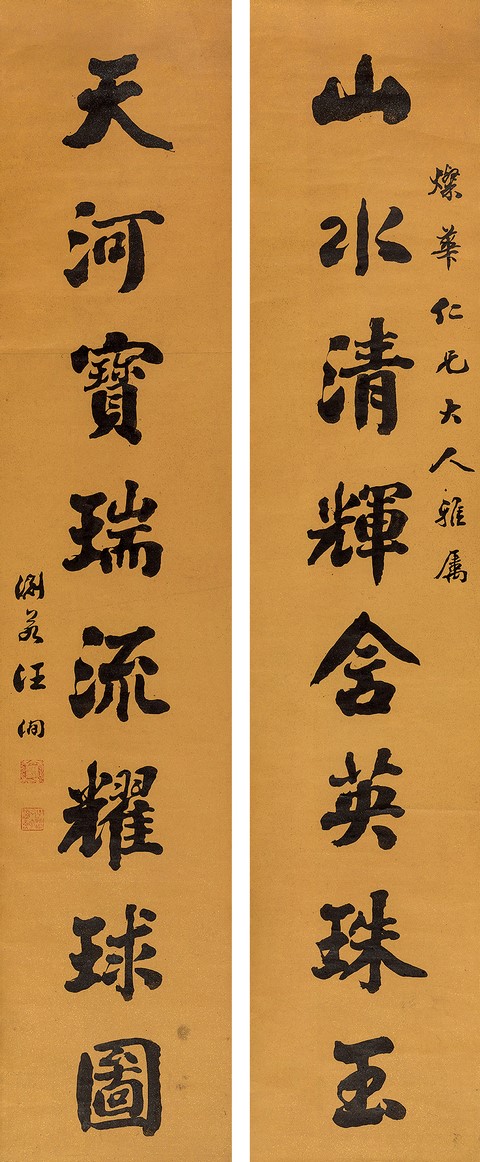 燦華仁兄大人雅屬
山水清輝含英珠玉
天河寶瑞流耀球圖
淵若汪洵